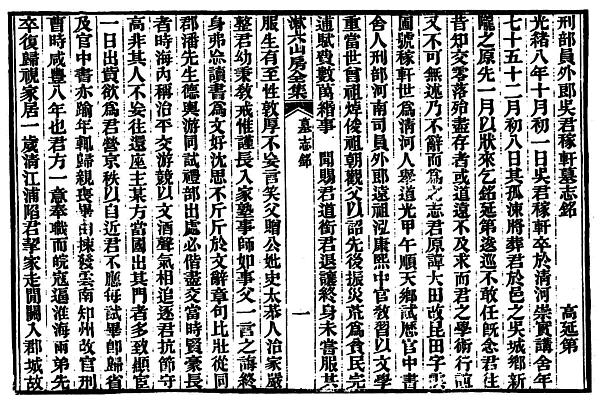 刑部員外郎吳君稼軒墓志銘　高延第
光緒八年十月初一日吳君稼軒卒於清河崇實講舍年
七十五十二月初八日其孤涑將葬君於邑之吳城鄉新
隴之原先一月以狀來乞銘延第逡巡不敢任既念君往
昔知交零落殆盡存者或道遠不及求而君之學術行誼
又不可無述乃不辭而為之志君原諱大田改昆田字雲
圃號稼軒世為清河人舉道光甲午順天鄉試歷官中書
舍人刑部河南司員外郎遠祖泓康熙中官教習以文學
重當世曾祖焯俊祖朝觀父以詔先後振災荒為貧民完
逋賦費數萬緡事　聞賜君道銜君退讓終身未嘗服其
漱六山房全集　墓志銘　一
服生有至性敦厚不妄言笑父贈公妣史太恭人治家嚴
整君幼秉教戒惟謹長入家塾事師如事父一言之誨終
身弗忘讀書為文好沈思不斤斤於文辭章句比壯從同
郡潘先生德輿游同試禮部出處必偕盡交當時賢豪長
者時海內稱治平交游競以文酒聲氣相追逐君抗節守
高非其人不妄往還座主某方當國出其門者多致顯宦
一日出貲欲為君營京秩以自近君不應每試畢即歸省
及官中書亦踰年輒歸親喪畢由揀發雲南知州改官刑
曹時咸豐八年也君方一意奉職而皖寇逼淮海兩弟先
卒復歸視家居一歲清江浦陷君挈家走閒關入郡城故